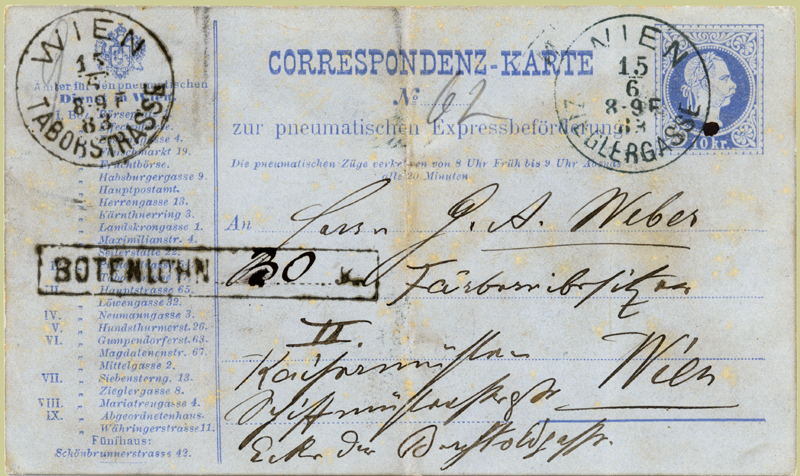 WIEN
15
6
8-9F
83
TABORSTRASSE
WIEN
15
6
8-9F
83
ZIEGLERGASSE
CORRESPONDENZ-KARTE
No 62
zur pneumatischen Expressbeförderung
Die pneumatischen Züge verkehren von 8 Uhr Früh bis 9 Uhr Abends
alle 20 Minuten
10 kr.
Ämter für den pneumatischen
Dienst in Wien.
I. Bez. Börseplatz.
Fleischmarkt 19.
Fruchtbörse.
Habsburgergasse 9.
Hauptpostamt.
Herrengasse 13.
Kärnthnerring 3.
Landskrongasse 1.
Maximilianstr. 4.
Seilerstätte 22.
Hauptstrasse 65.
Löwengasse 32.
IV. Neumanngasse 3.
V. Hundsthurmerst. 26.
VI. Gumpendorferst. 63.
Magdalenenstr. 67.
Mittelgasse 2.
VII. Siebensterng. 13.
Zieglergasse 8.
VIII. Mariatreugasse 4.
IX. Abgeordnetenhaus.
Währingerstrasse 11.
Fünfhaus:
Schönbrunnerstrasse 42.
BOTENLOHN 30 K.
An Herrn G. A. Weber
Färbereibesitzer
II.
Kaisermühlen Wien
Schiffmühlenstrasse
Ecke der